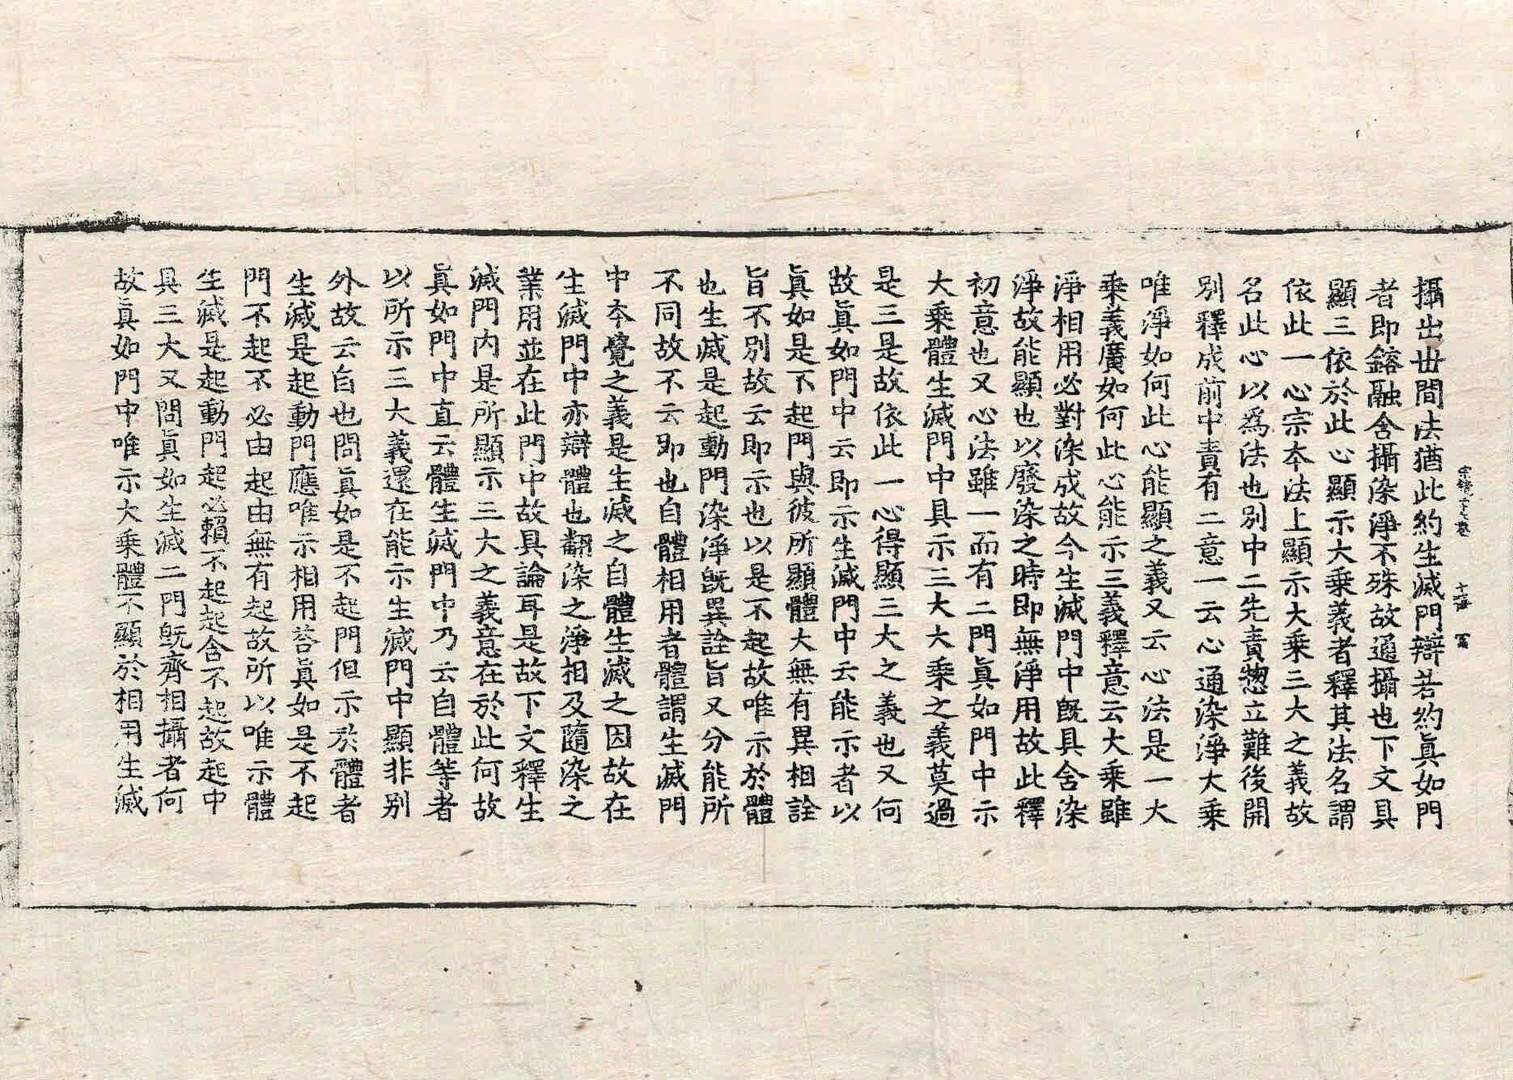 攝出世間法猶此約生滅門辯若約眞如門
者即鎔融含攝染淨不殊故通攝也下文具
顯三依於此心顯示大乘義者釋其法名謂
依此一心宗本法上顯示大乘三大之義故
名此心以爲法也別中二先責惣立難後開
別釋成前中責有二意一云心通染淨大乘
唯淨如何此心能顯之義又云心法是一大
乘義廣如何此心能示三義釋意云大乘雖
淨相用必對染成故今生滅門中旣具含染
淨故能顯也以廢染之時即無淨用故此釋
初意也又心法雖一而有二門眞如門中示
大乘體生滅門中具示三大大乘之義莫過
是三是故依此一心得顯三大之義也又何
故眞如門中云即示生滅門中云能示者以
眞如是不起門與彼所顯體大無有異相詮
旨不別故云即示也以是不起故唯示於體
也生滅是起動門染淨旣異詮旨又分能所
不同故不云即也自體相用者體謂生滅門
中本覺之義是生滅之自體生滅之因故在
生滅門中亦辯體也翻染之淨相及隨染之
業用並在此門中故具論耳是故下文釋生
滅門內是所顯示三大之義意在於此何故
眞如門中直云體生滅門中乃云自體等者
以所示三大義還在能示生滅門中顯非別
外故云自也問眞如是不起門但示於體者
生滅是起動門應唯示相用答眞如是不起
門不起不必由起由無有起故所以唯示體
生滅是起動門起必賴不起起含不起故起中
具三大又問眞如生滅二門旣齊相攝者何
故眞如門中唯示大乘體不顯於相用生滅